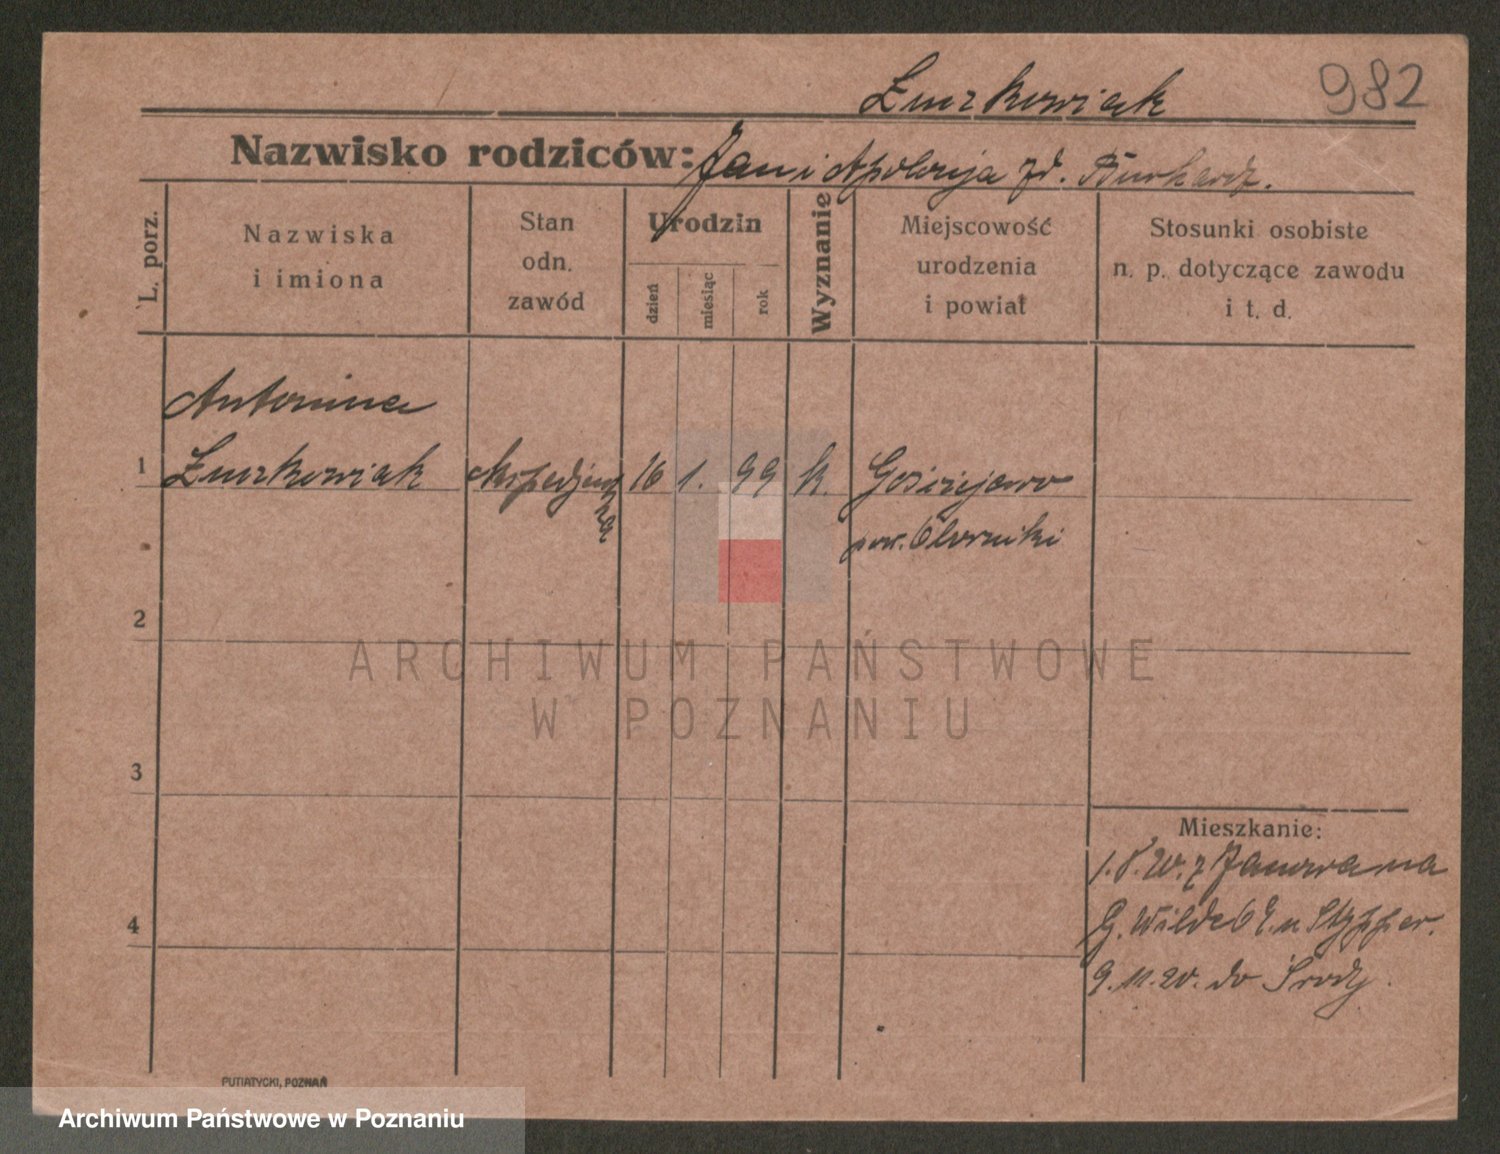 Żurkowiak 982
Nazwisko rodziców: Jan i Apolonja zd. Burhardz.
L. porz.
Nazwiska
i imiona
Stan
odn.
zawód
Urodzin
dzień
miesiąc
rok
Wyznanie
Miejscowość
urodzenia
i powiat
Stosunki osobiste
n. p. dotyczące zawodu
i t. d.
Antonina
1 Żurkowiak ekspedjentka 16 1. 99 k. Gościejewo
pow. Oborniki
2
3
4
Mieszkanie:
1.8.20. z Janowa na
G. Wilde 6 I. u
9.11.20. do Środy.
PUTIATYCKI, POZNAŃ
ARCHIWUM PAŃSTWOWE
W POZNANIU
Archiwum Państwowe w Poznaniu